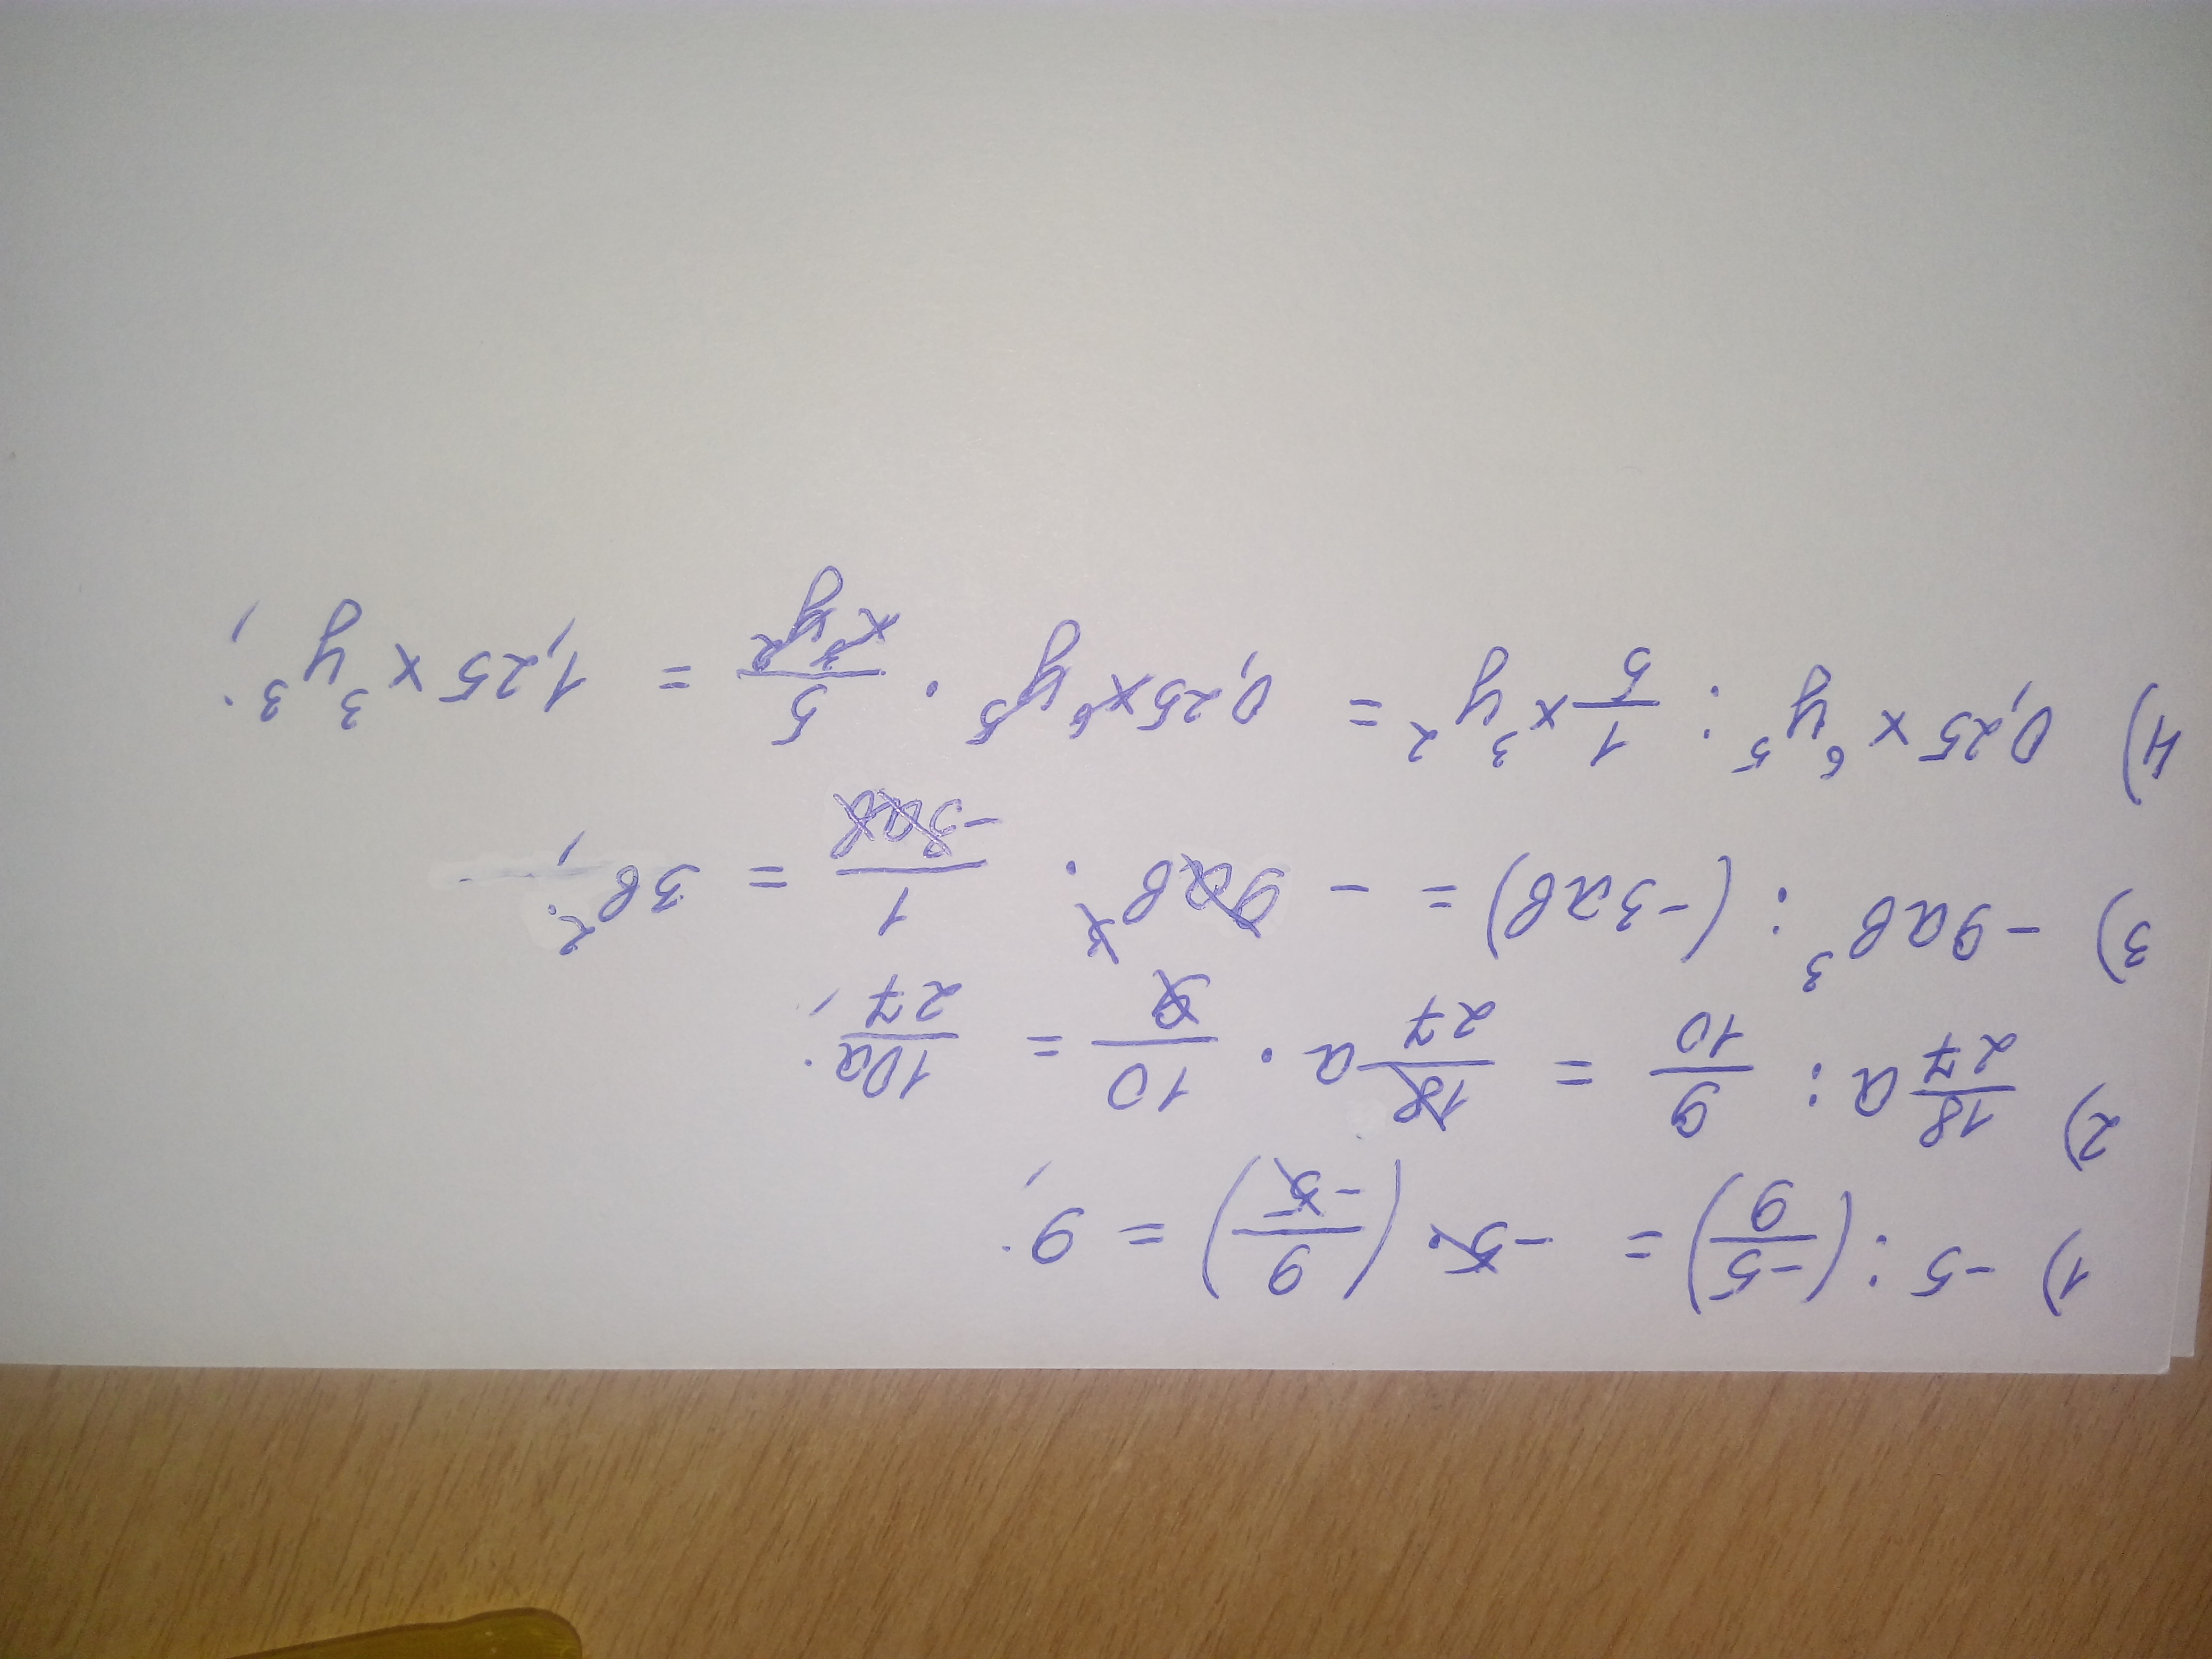 1) -5 : (-5/9) = -5 · (9/-5) = 9;
2) 18/27 a : 9/10 = 18/27 a · 10/9 = 10a/27;
3) -9ав³ : (-3ав) = -9ав² · 1/-3ав = 3в²;
4) 0,25x⁶y⁵ : 1/5 x³y² = 0,25x⁶y⁵ · 5/x³y² = 1,25x³y³;